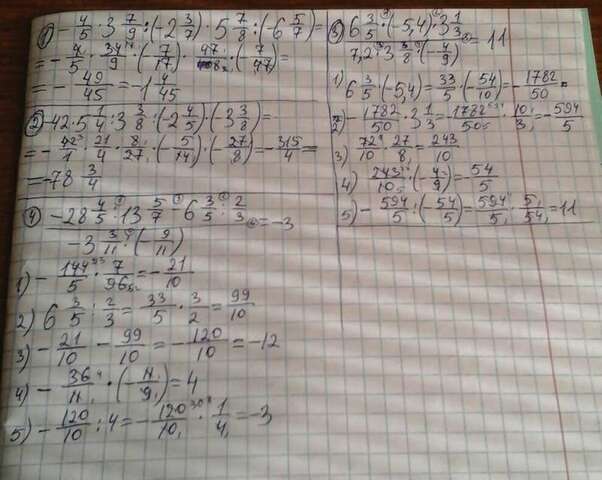 1) -4/5 · 3 7/9 : (-2 3/7) · 5 7/8 : (6 5/7) =
= -4/5 · 34/9 · (-7/17) · 47/8 · (-7/47) =
= -49/45 = -1 4/45
2) -42 · 5 1/4 : 3 3/8 : (-2 4/5) · (-3 3/8) =
= -42/1 · 21/4 · 8/27 · (-5/14) · (-27/8) = -315/4 =
= -78 3/4
4) -28 4/5 : 13 5/7 - 6 3/5 : 2/3 = -3
-3 3/11 : (-9/11)
1) -144/5 · 7/96 = -21/10
2) 6 3/5 : 2/3 = 33/5 · 3/2 = 99/10
3) -21/10 - 99/10 = -120/10 = -12
4) -36/11 · (-11/9) = 4
5) -120/10 : 4 = -120/10 · 1/4 = -3
3) 6 3/5 · (-5,4) · 3 1/3 = 11
7,2 · 3 3/8 : (-4/9)
1) 6 3/5 · (-5,4) = 33/5 · (-54/10) = -1782/50
2) -1782/50 · 3 1/3 = -1782/50 · 10/3 = -594/5
3) 72/10 · 27/8 = 243/10
4) 243/10 · (-4/9) = -54/5
5) -594/5 : (-54/5) = 594/5 · 5/54 = 11